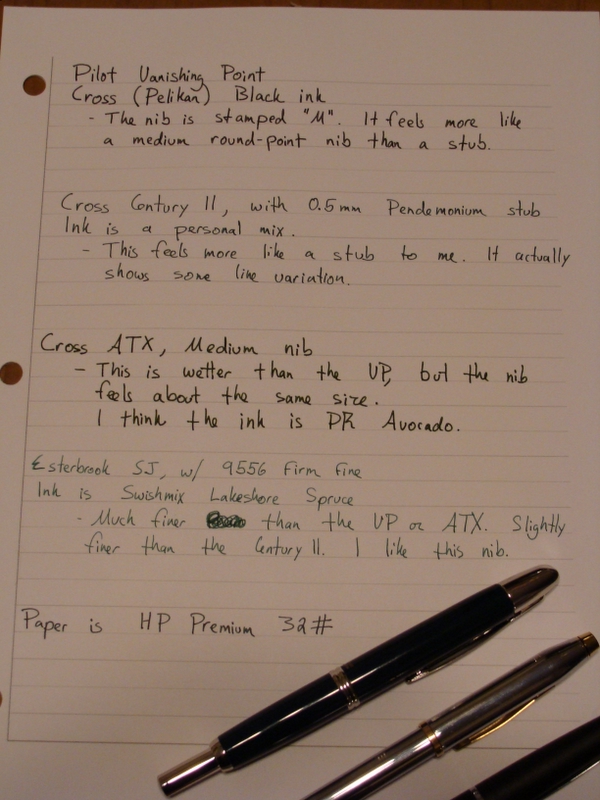 Pilot Vanishing Point
Cross (Pelikan) Black ink
- The nib is stamped "M". It feels more like
a medium round-point nib than a stub.
Cross Century II, with 0.5mm Pendemonium stub
Ink is a personal mix.
- This feels more like a stub to me. It actually
shows some line variation.
Cross ATX, Medium nib
- This is wetter than the VP, but the nib
feels about the same size.
I think the ink is PR Avocado.
Esterbrook SJ, w/ 9556 Firm Fine
Ink is Swishmix Lakeshore Spruce
- Much finer than the VP or ATX. Slightly
finer than the Century II. I like this nib.
Paper is HP Premium 32#